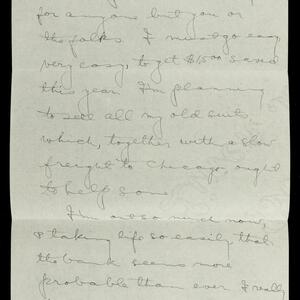 for anyone but you or
the folks. I must go easy
very easy, to get $1500 saved
this year. I'm planning
to sell all my old suits
which, together with a slow
freight to Chicago, ought
to help some.
I'm out so much now,
& taking life so easily that
the bank seems more
probable than ever. I really